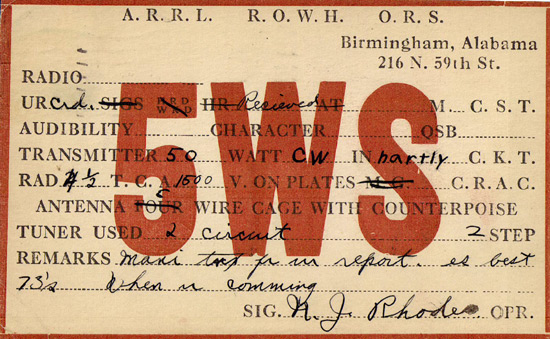 A. R. R. L.  R. O. W. H.  O. R. S.
Birmingham, Alabama
216 N. 59th St.
5WS
RADIO
UR Crd. SIGS HRD WKD HR Recieved AT M. C. S. T.
AUDIBILITY CHARACTER QSB
TRANSMITTER 50 WATT CW IN hartly C. K. T.
RAD 4½ T. C. A. 1500 V. ON PLATES M. G. C. R. A. C.
ANTENNA FOUR 5 WIRE CAGE WITH COUNTERPOISE
TUNER USED 2 circuit 2 STEP
REMARKS Mani fr ur report. es best
73's When u comming
SIG. N. J. Rhodes OPR.